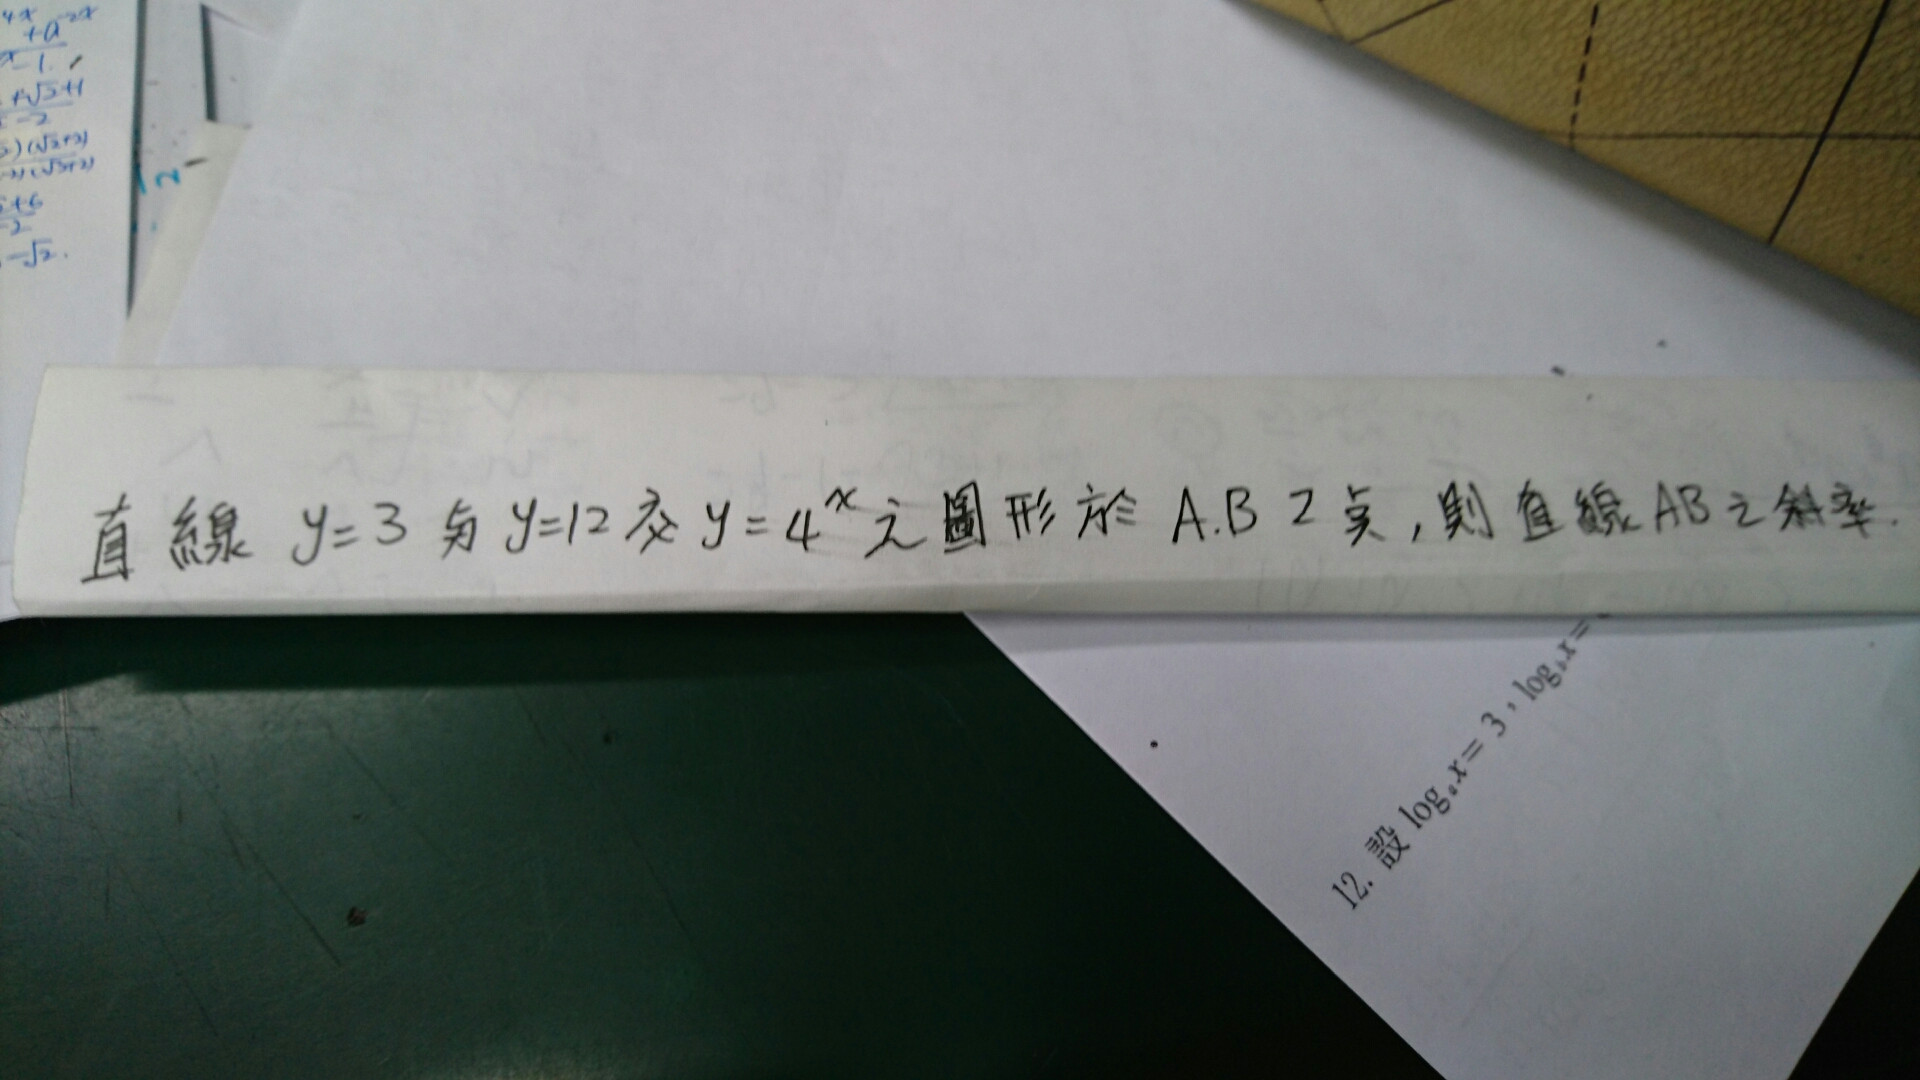 4x -2x
+a
-1
+√2+1
-2
2
-√2.
直線 y=3 与 y=12 交 y=4^x 之圖形於 A.B 2 点,則直線 AB 之斜率.
12. 設 logₐx=3,log_b x=